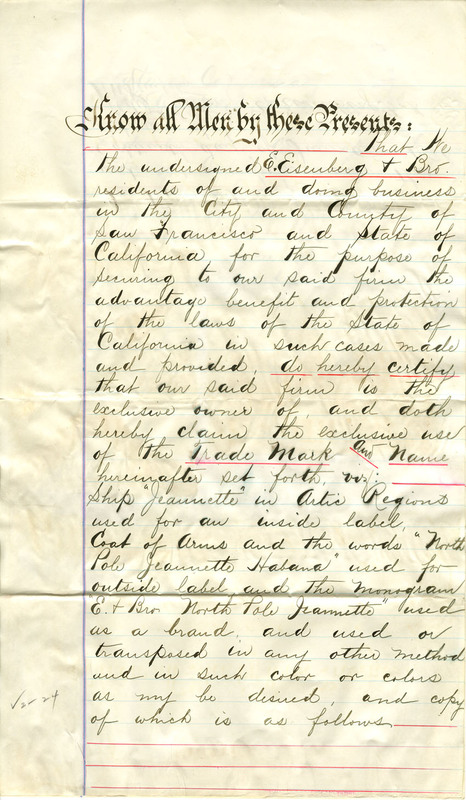 Know all Men by these Presents:
That We
the undersigned E. Eisenberg & Bro.
residents of and doing business
in the City and County of
San Francisco and State of
California, for the purpose of
securing to our said firm the
advantage benefit and protection
of the laws of the State of
California in such cases made
and provided, do hereby certify
that our said firm is the
exclusive owner of, and doth
hereby claim the exclusive use
of the Trade Mark and Name
hereinafter set forth, viz:
Ship "Jeannette" in Artic Regions
used for an inside label,
Coat of Arms and the words "North
Pole Jeannette Habana" used for
outside label and the monogram
E. & Bro North Pole Jeannette" used
as a brand, and used or
transposed in any other method
and in such color or colors
as my be desired, and copy
of which is as follows